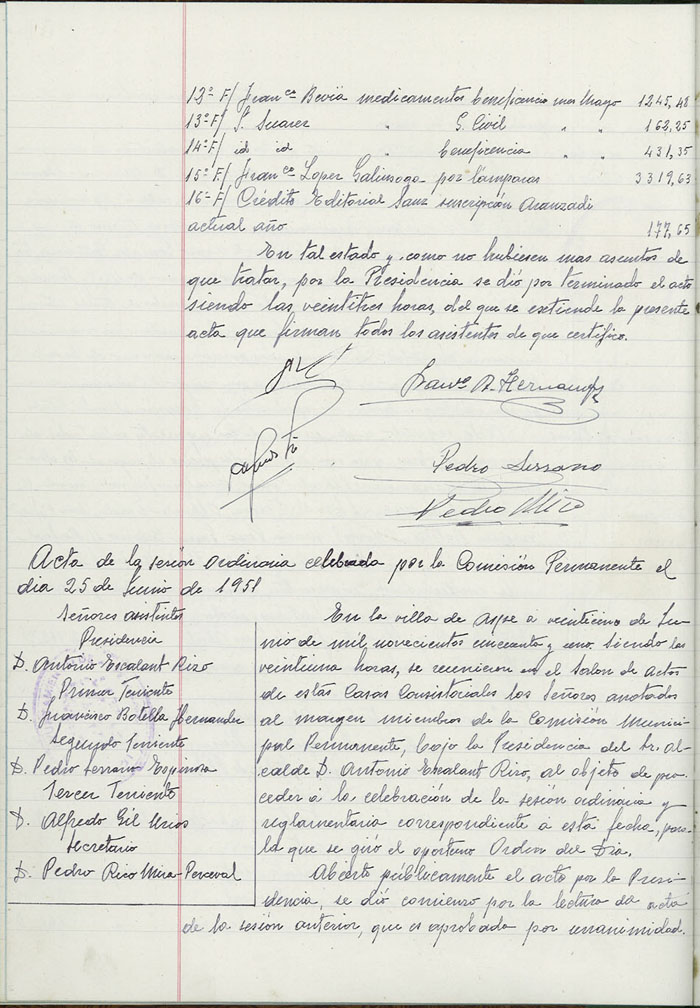 12º F/ Franco Beviá medicamentos beneficencia mes Mayo 1245,48
13º F/ S. Suarez " G. Civil " " 162,25
14º F/ id id " beneficencia " " 431,35
15º F/ Franco Lopez Galinsoga por lámparas 3319,63
16º F/ Crédito Editorial Sanz suscripción Aranzadi
actual año 177,65
En tal estado y como no hubiesen mas asuntos de
que tratar, por la Presidencia se dió por terminado el acto
siendo las veintitres horas, del que se extiende la presente
acta que firman todos los asistentes de que certifico.
Franco B. Hernandez
Pedro Serrano
Pedro Mira
Acta de la sesión ordinaria celebrada por la Comisión Permanente el
dia 25 de Junio de 1951
Señores asistentes
Presidencia
D. Antonio Escalant Rizo
Primer Teniente
D. Francisco Botella Hernander
Segundo Teniente
D. Pedro Serrano Espinosa
Tercer Teniente
D. Alfredo Gil Mios
Secretario
D. Pedro Rico Mira-Perceval
En la villa de Aspe á veinticinco de Ju-
nio de mil novecientos cincuenta y uno. Siendo las
veintiuna horas, se reunieron en el Salon de Actos
de estas Casas Consistoriales los Señores anotados
al margen miembros de la Comisión Munici-
pal Permanente, bajo la Presidencia del Sr. Al-
calde D. Antonio Escalant Rizo, al objeto de pro-
ceder á la celebración de la sesión ordinaria y
reglamentaria correspondiente á esta fecha, para
la que se giró el oportuno Orden del Dia.
Abierto públicamente el acto por la Presi-
dencia, se dió comienzo por la lectura del acta
de la sesión anterior, que es aprobada por unanimidad.